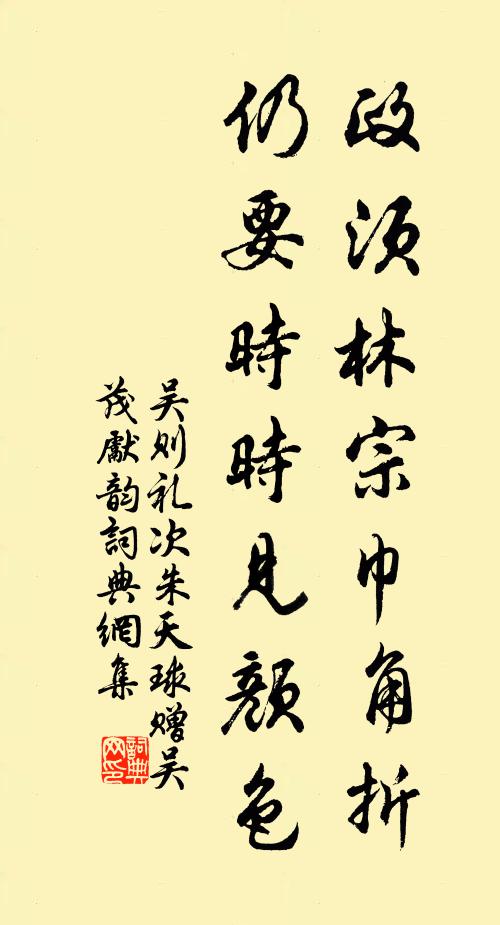 政须林宗巾角折
仍要時時見顏色
吴则礼次朱天球赠吴
茂獻韵詞典網集
詞典
网印